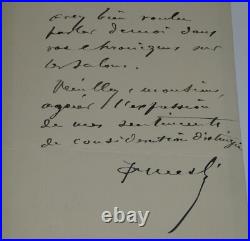 avez bien voulu
parler de moi dans
vos chroniques sur
les Salons.
Veuillez, monsieur,
agréer l'expression
de mes sentiments
de considération distinguée